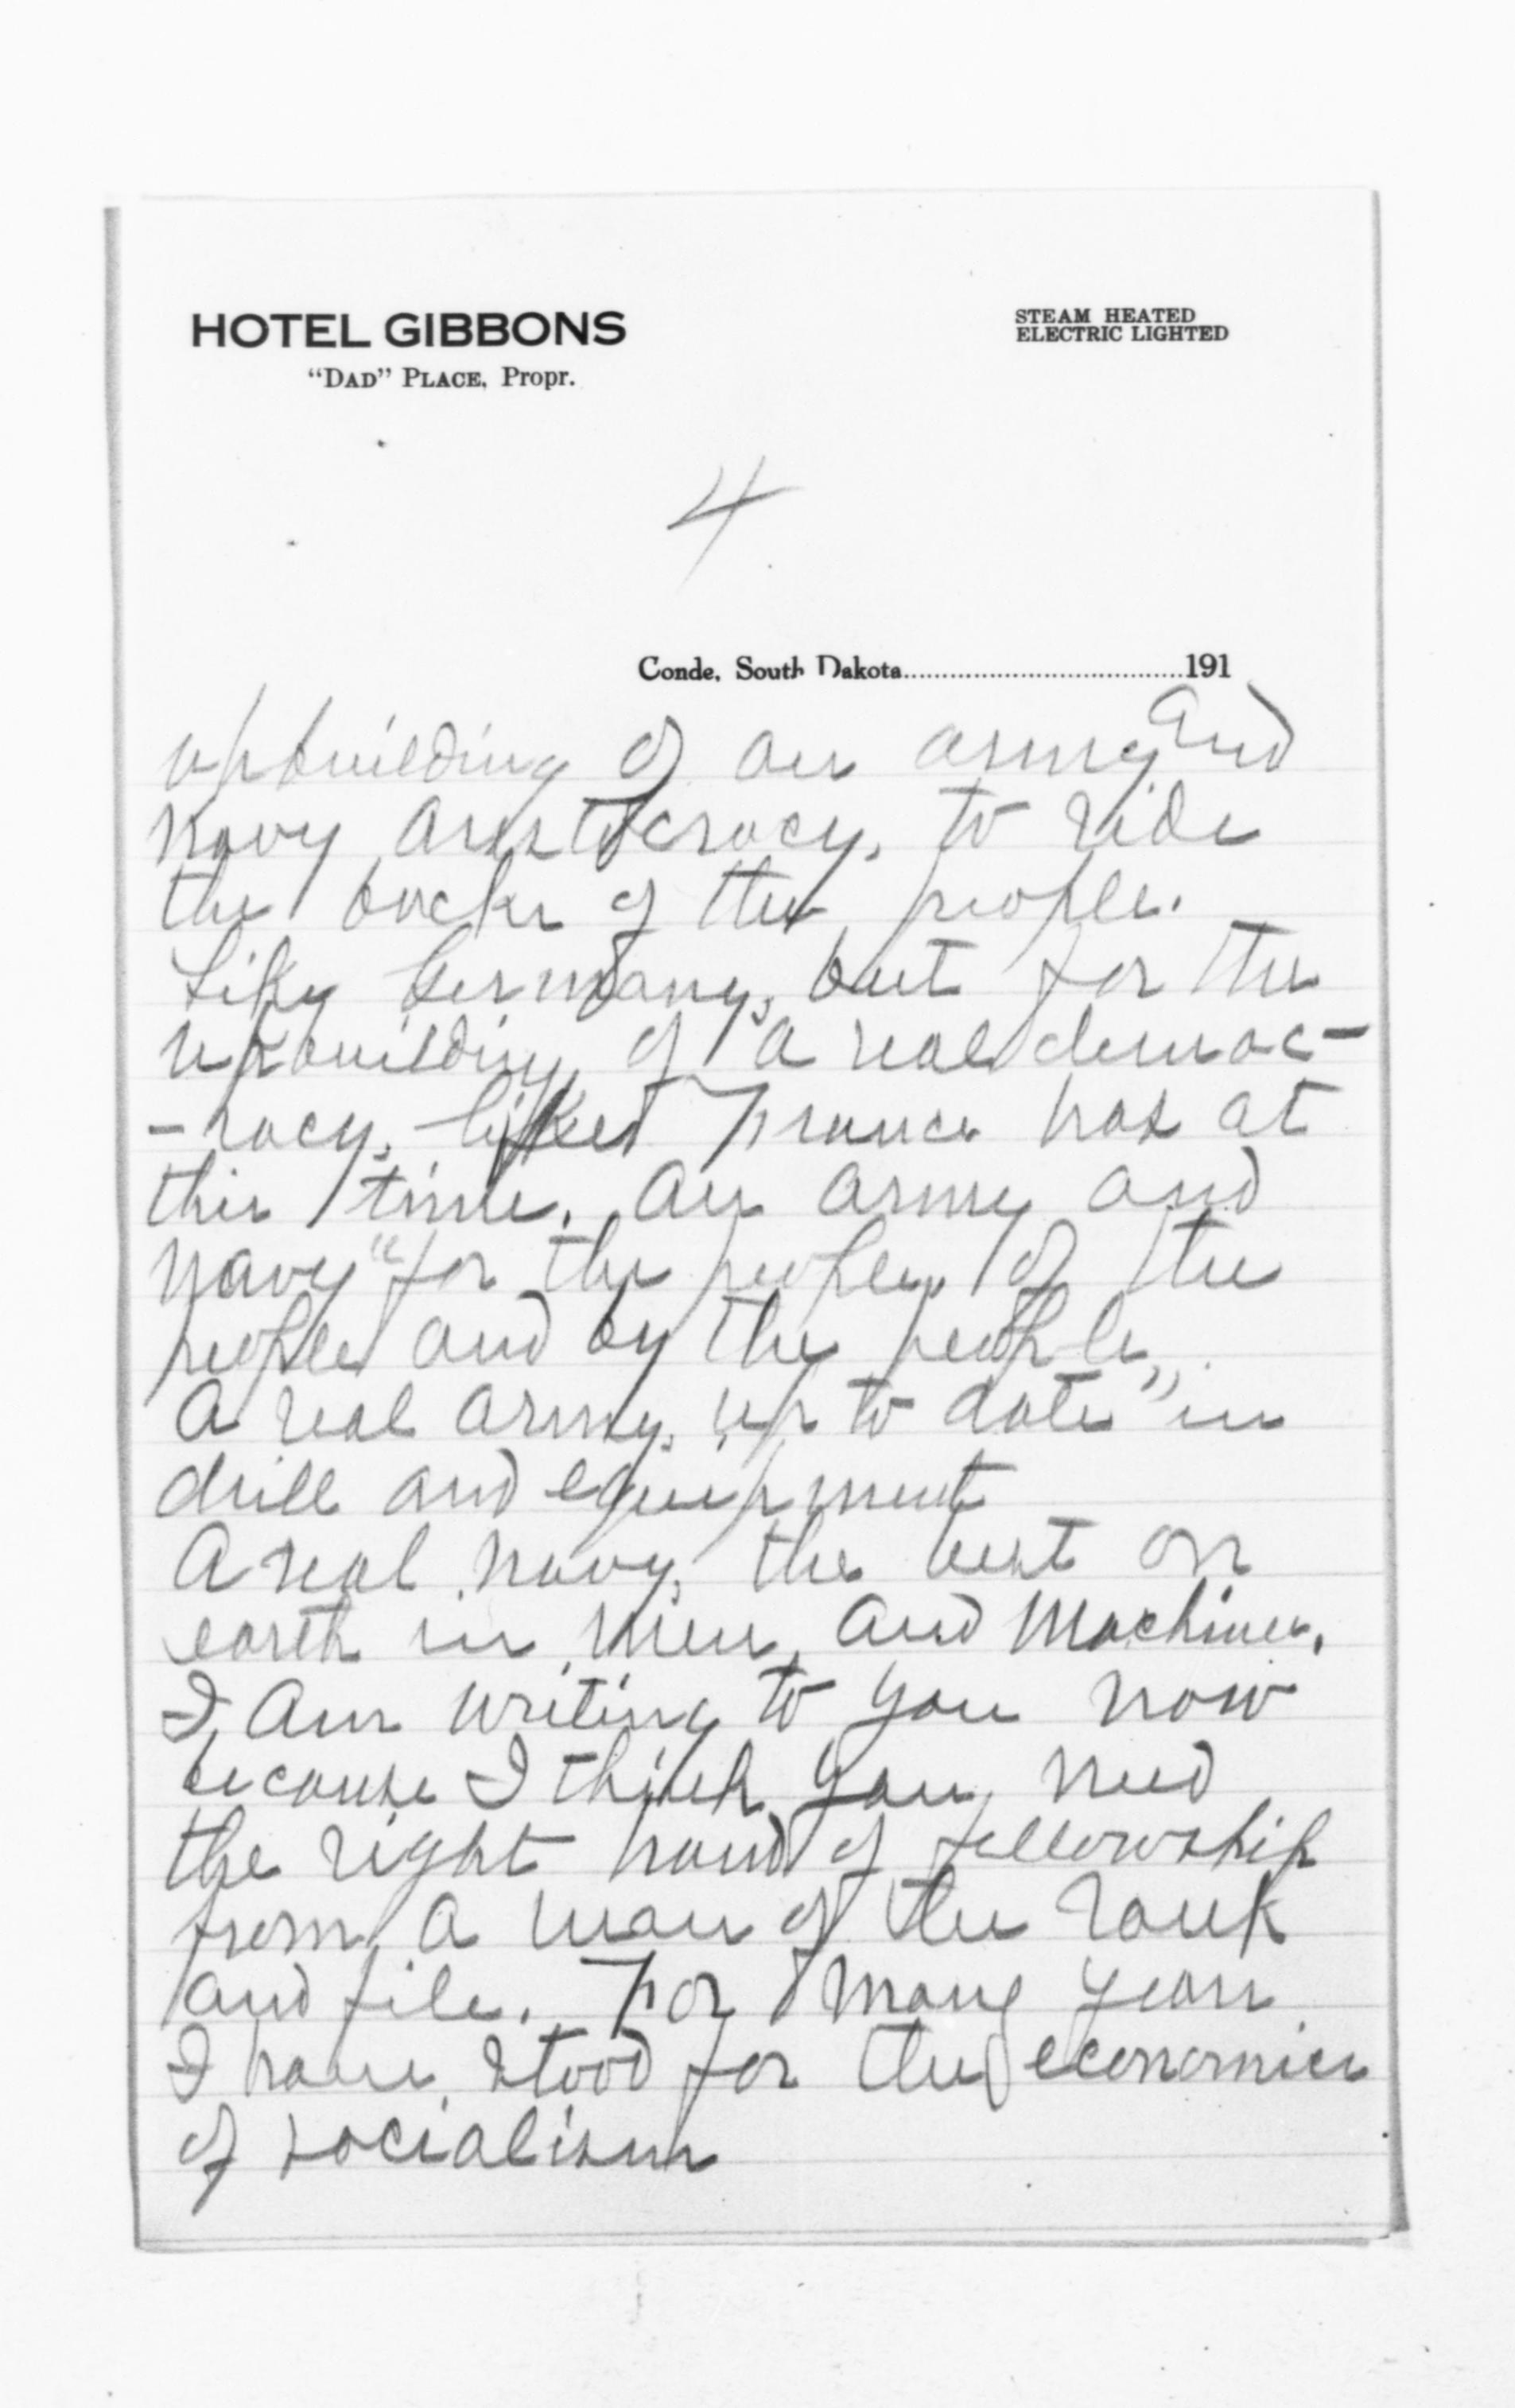 HOTEL GIBBONS
"DAD" PLACE, Propr.
STEAM HEATED
ELECTRIC LIGHTED
4
Conde, South Dakota 191
upbuilding of an army and
navy aristocracy, to ride
the backs of the people.
Like Germany, but for the
upbuilding of a real democ-
-racy, like France has at
this time. An army and
navy "for the people, of the
people and by the people,"
A real army, up to date in
drill and equipment
A real navy, the best on
earth in men, and Machines.
I am writing to you now
because I think you need
the right hand of fellowship
from a man of the rank
and file. For many years
I have stood for the economics
of socialism